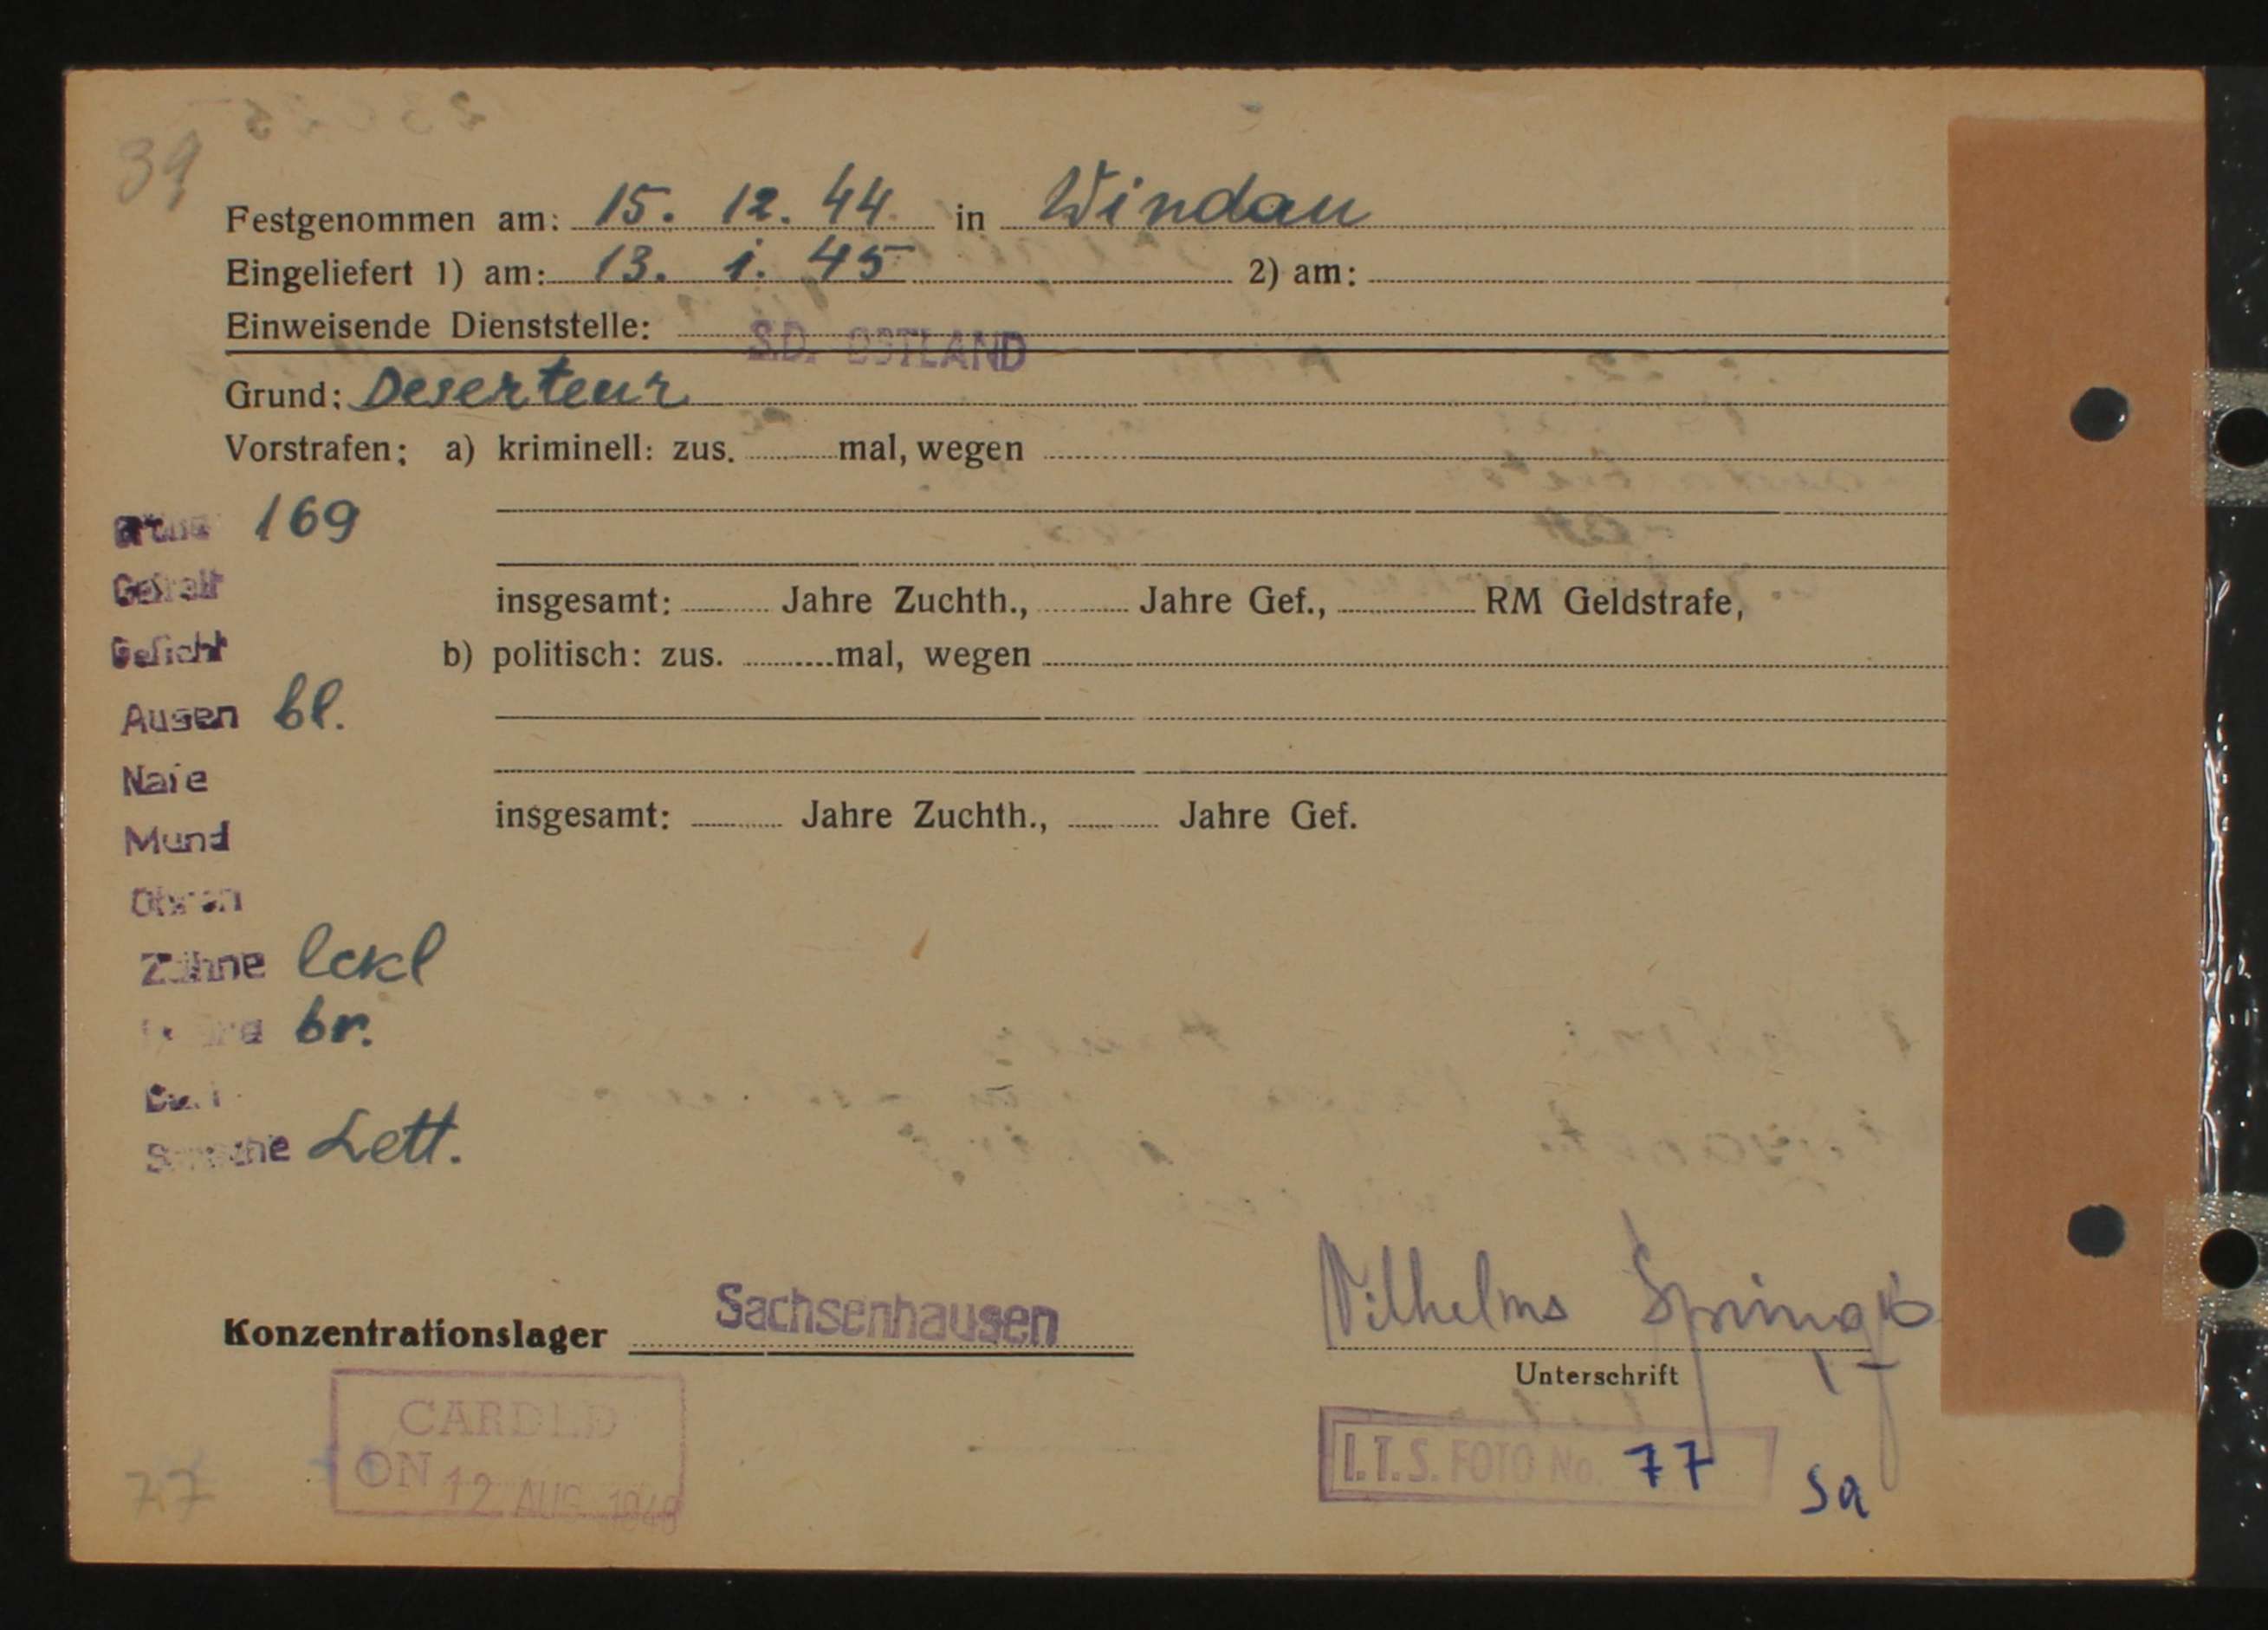 39
Festgenommen am: 15. 12. 44 in Windau
Eingeliefert 1) am: 13. 1. 45 2) am:
Einweisende Dienststelle: S.D. OSTLAND
Grund: Deserteur
Vorstrafen: a) kriminell: zus. mal, wegen
Größe 169
Gestalt
insgesamt: Jahre Zuchth., Jahre Gef., RM Geldstrafe,
Gesicht
b) politisch: zus. mal, wegen
Augen bl.
Nase
Mund
insgesamt: Jahre Zuchth., Jahre Gef.
Ohren
Zähne lckl
br.
Sprache Lett.
Konzentrationslager Sachsenhausen
Wilhelms
Unterschrift
CARDED
ON 12 AUG 1948
I.T.S. FOTO No. 77
Sa
77